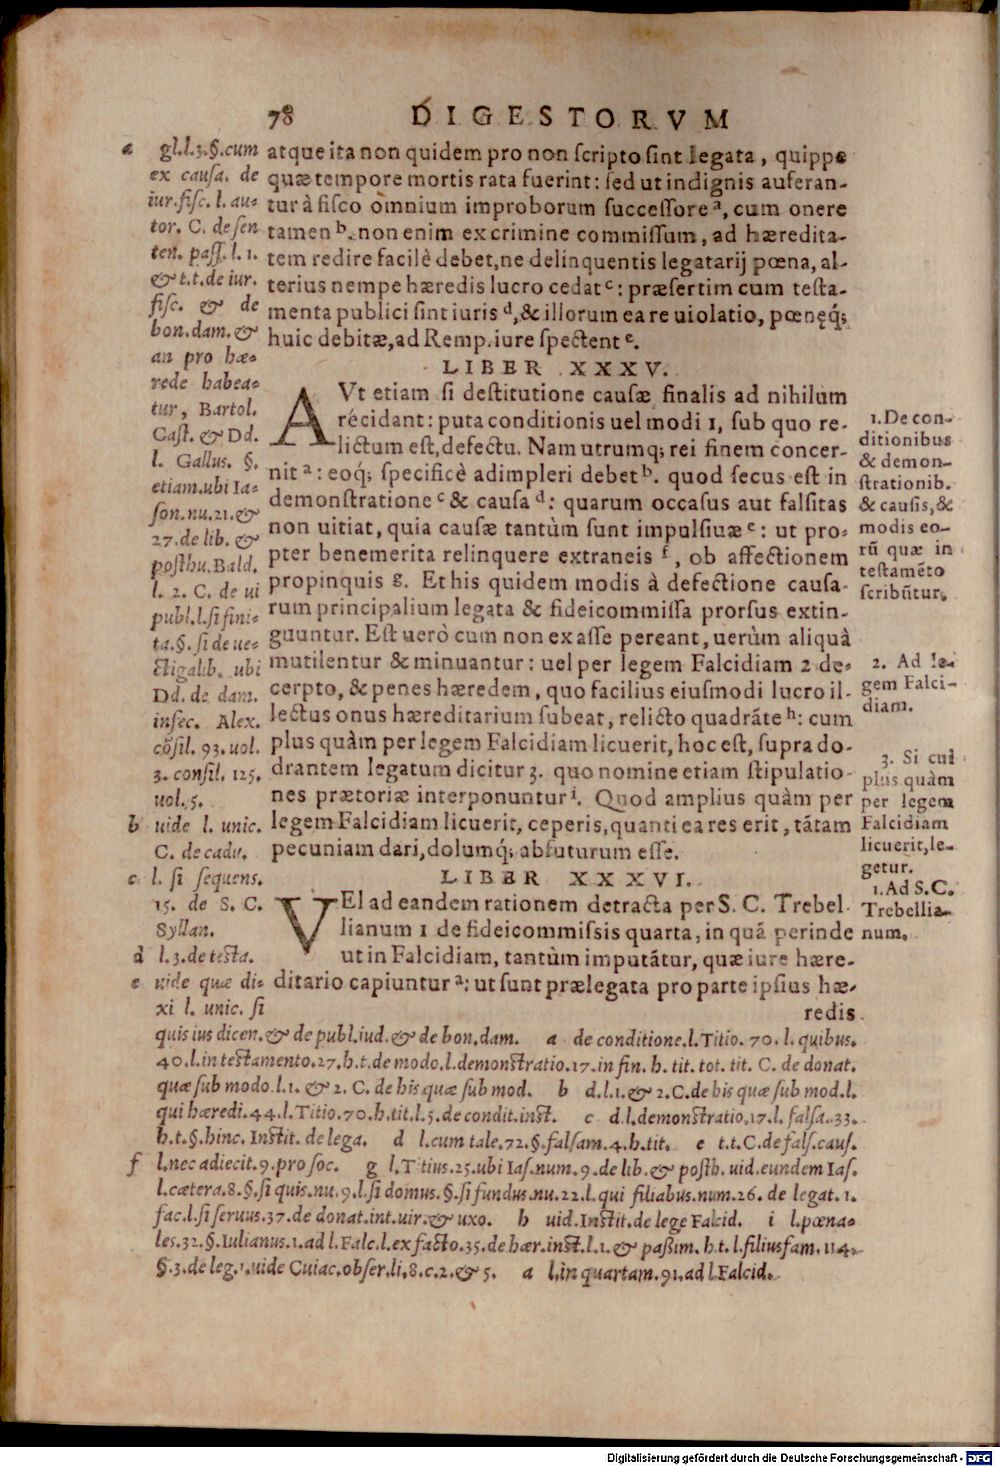 78 DIGESTORVM
atque ita non quidem pro non ſcripto ſint legata, quippe
quæ tempore mortis rata fuerint: ſed ut indignis auferan-
tur à fiſco omnium improborum ſucceſſore ᵃ, cum onere
tamen ᵇ. non enim ex crimine commiſſum, ad hæredita-
tem redire facilè debet, ne delinquentis legatarij pœna, al-
terius nempe hæredis lucro cedat ᶜ: præſertim cum teſta-
menta publici ſint iuris ᵈ, & illorum ea re uiolatio, pœnęq́;
huic debitæ, ad Remp. iure ſpectent ᵉ.
LIBER XXXV.
AVt etiam ſi deſtitutione cauſæ finalis ad nihilum
récidant: puta conditionis uel modi 1, ſub quo re-
lictum eſt, defectu. Nam utrumq; rei finem concer-
nit ᵃ: eoq́; ſpecificè adimpleri debet ᵇ. quod ſecus eſt in
demonſtratione ᶜ & cauſa ᵈ: quarum occaſus aut falſitas
non uitiat, quia cauſæ tantùm ſunt impulſiuæ ᵉ: ut pro-
pter benemerita relinquere extraneis ᶠ, ob affectionem
propinquis g. Et his quidem modis à defectione cauſa-
rum principalium legata & fideicommiſſa prorſus extin-
guuntur. Eſt uerò cum non ex aſſe pereant, uerùm aliquà
mutilentur & minuantur: uel per legem Falcidiam 2 de-
cerpto, & penes hæredem, quo facilius eiuſmodi lucro il-
lectus onus hæreditarium ſubeat, relicto quadrãte ʰ: cum
plus quàm per legem Falcidiam licuerit, hoc eſt, ſupra do-
drantem legatum dicitur 3. quo nomine etiam ſtipulatio-
nes prætoriæ interponuntur ⁱ. Quod amplius quàm per
legem Falcidiam licuerit, ceperis, quanti ea res erit, tãtam
pecuniam dari, dolumq́; abfuturum eſſe.
LIBER XXXVI.
VEl ad eandem rationem detracta per S. C. Trebel-
lianum 1 de fideicommiſsis quarta, in quã perinde
ut in Falcidiam, tantùm imputãtur, quæ iure hære-
ditario capiuntur ᵃ: ut ſunt prælegata pro parte ipſius hæ-
redis
a gl.l.3.§.cum
ex cauſa. de
iur.fiſc. l. au-
tor. C. de ſen
ten. paſſ. l. 1.
& t.t.de iur.
fiſc. & de
bon.dam. &
an pro hæ-
rede habea-
tur, Bartol.
Caſt. & Dd.
l. Gallus. §.
etiam. ubi Ia-
ſon.nu.21. &
27. de lib. &
poſthu. Bald.
l. 2. C. de ui
publ.l.ſi fini-
ta.§.ſi de ue-
ctigalib. ubi
Dd. de dam.
infec. Alex.
cõſil. 93. uol.
3. conſil. 125.
uol. 5.
b uide l. unic.
C. de cadu.
c l. ſi ſequens.
15. de S. C.
Syllan.
d l.3.de teſta.
e uide quæ di-
xi l. unic. ſi
1. De con-
ditionibus
& demon-
ſtrationib.
& cauſis, &
modis eo-
rũ quæ in
teſtamẽto
ſcribũtur.
2. Ad le-
gem Falci-
diam.
3. Si cui
plus quàm
per legem
Falcidiam
licuerit, le-
getur.
1. Ad S.C.
Trebellia-
num.
quis ius dicen. & de publ.iud. & de bon.dam. a de conditione.l.Titio. 70. l. quibus.
40.l.in teſtamento.27.h.t.de modo.l.demonſtratio.17.in fin. h. tit. tot. tit. C. de donat.
quæ ſub modo.l.1. & 2. C. de his quæ ſub mod. b d.l.1.& 2.C.de his quæ ſub mod.l.
qui hæredi.44.l.Titio.70.h.tit.l.5.de condit.inſt. c d l.demonſtratio.17.l. falſa.33.
h.t.§.hinc. Inſtit. de lega. d l.cum tale.72.§.falſam.4.h.tit. e t.t.C.de falſ.cauſ.
f l.nec adiecit.9.pro ſoc. g l.Titius.25.ubi Iaſ.num.9.de lib.& poſth. uid.eundem Iaſ.
l.cætera.8.§.ſi quis.nu.9.l.ſi domus.§.ſi fundus.nu.22.l.qui filiabus.num.26. de legat.1.
fac.l.ſi ſeruus.37.de donat.int.uir.& uxo. h uid.Inſtit.de lege Falcid. i l.pœna-
les.32.§.Iulianus.1.ad l.Falc.l.ex facto.35.de hær.inſt.l.1.& paßim. h.t.l.filiusfam.114.
§.3.de leg.1.uide Cuiac.obſer.li.8.c.2.& 5. a l.in quartam.91.ad l.Falcid.
Digitalisierung gefördert durch die Deutsche Forschungsgemeinschaft - DFG